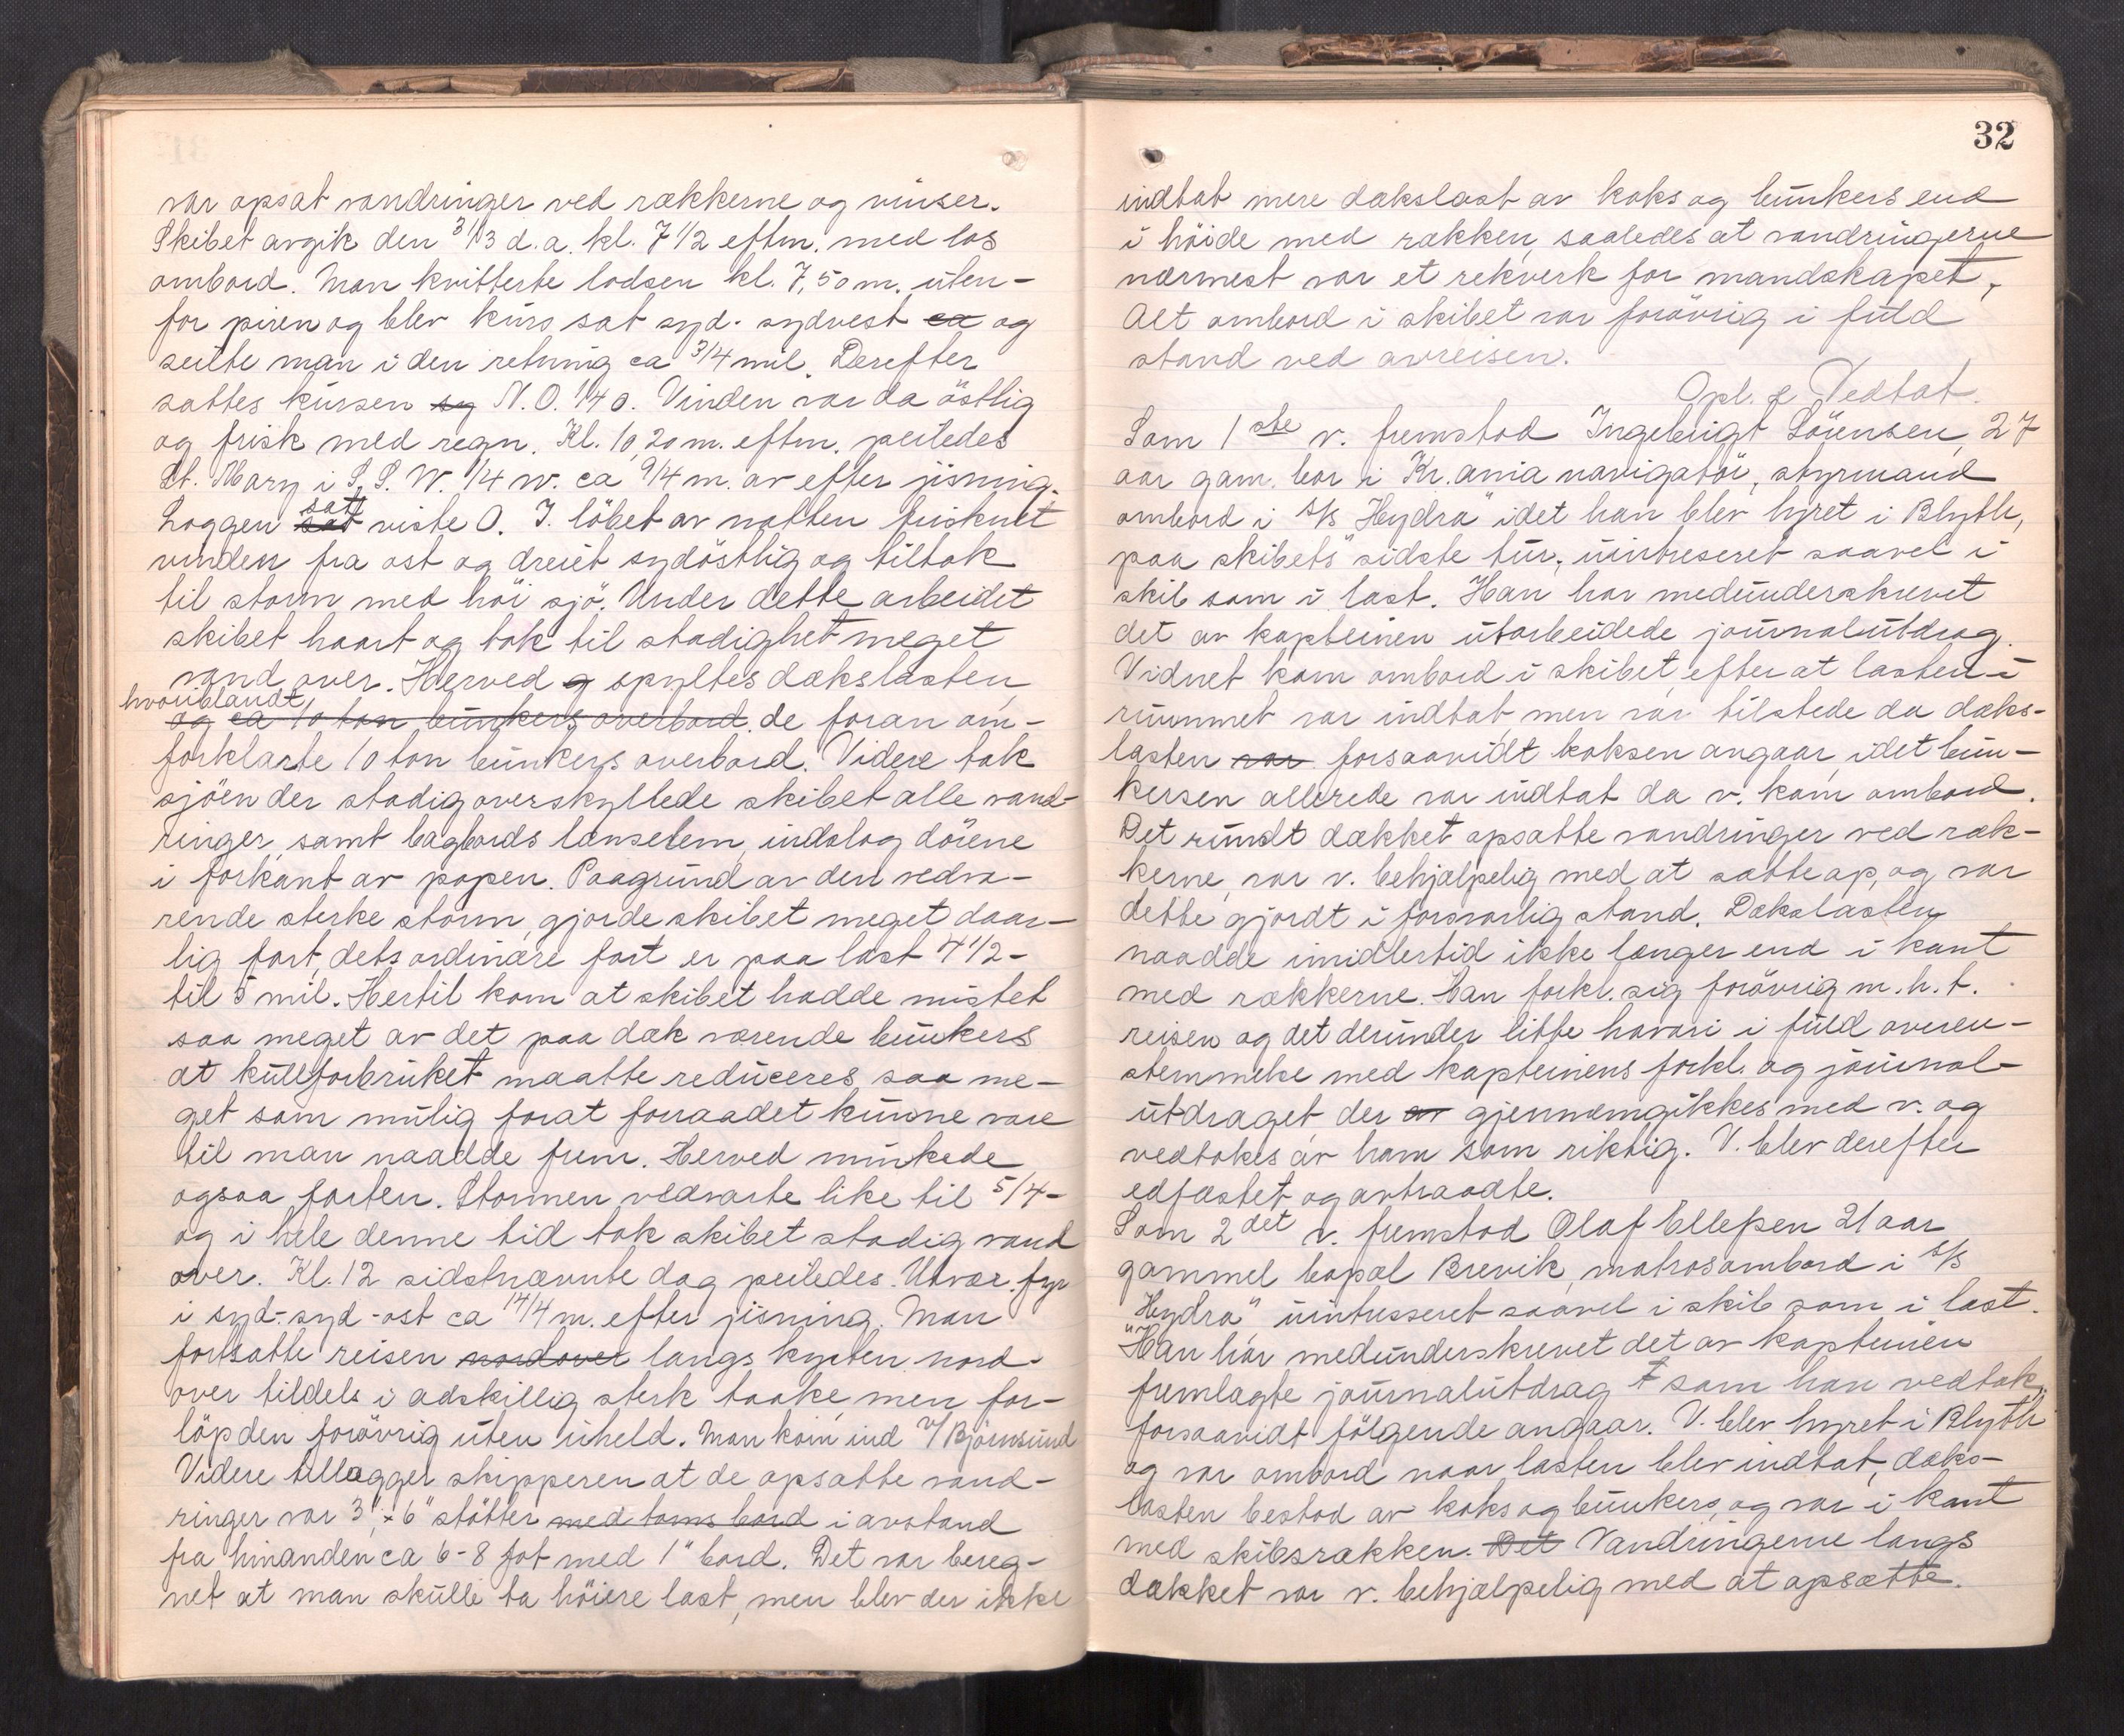 var opsat vandringer ved rækkerne og vinser.
Skibet avgik den 31/3 d.a. kl. 7 1/2 eftm. med los
ombord. Man kvitterte lodsen kl. 7,50 m. uten-
for piren og blev kurs sat syd-sydvest ca og
seilte man i den retning ca 3/4 mil. Derefter
sattes kursen sy N.O. 1/4 o. Vinden var da östlig
og frisk med regn. Kl. 10,20 m. eftm. peiledes
St. Mary i S.S.W. 1/4 w. ca 9/4 m. av efter jisning.
Loggen sat sat viste 0. I löbet av natten frisknet
vinden fra ost og dreiet sydöstlig og tiltok
til storm med höi sjö. Under dette arbeidet
skibet haart og tok til stadighet meget
vand over. Herved og spyltes dækslasten,
hvoriblandt
og ca 10 ton bunkers overbord. de foran om-
forklarte 10 ton bunkers overbord. Videre tok
sjöen der stadig overskyllede skibet alle vand-
ringer, samt bagbords lænselem, indslog dörene
i forkant av popen. Paagrund av den vedva-
rende sterke storm, gjorde skibet meget daar-
lig fart, dets ordinære fart er paa last 4 1/2 -
til 5 mil. Hertil kom at skibet hadde mistet
saa meget av det paa dæk værende bunkers
at kullforbruket maatte reduceres saa me-
get som mulig forat forraadet kunne vare
til man naadde frem. Herved minkede
ogsaa farten. Stormen vedvarte like til 5/4 -
og i hele denne tid tok skibet stadig vand
over. Kl. 12 sidstnævnte dag peiledes Utvær fyr
i syd-syd-ost ca 14/4 m. efter jisning. Man
fortsatte reisen nordover langs kysten nord-
over tildels i adskillig sterk taake, men for-
löp den forövrig uten uheld. Man kom ind v/ Björnsund
Videre tillægger skipperen at de opsatte vand-
ringer var 3" x 6" stötter med toms bord i avstand
fra hinanden ca 6-8 fot med 1" bord. Det var bereg-
net at man skulle ta höiere last, men blev der ikke
32
indtat mere dækslast av koks og bunkers end
i höide med rækken, saaledes at vandringerne
nærmest var et rekverk for mandskapet,
Alt ombord i skibet var forövrig i fuld
stand ved avreisen.
Opl. & Vedtat.
Som 1ste v. fremstod Ingebrigt Sörensen, 27
aar gam. bor i Kr.ania navigatör, styrmand
ombord i s/s "Hydra" idet han blev hyret i Blyth,
paa skibets sidste tur, uintreseret saavel i
skib som i last. Han har medunderskrevet
det av kapteinen utarbeidede journalutdrag.
Vidnet kom ombord i skibet, efter at lasten i
rummet var indtat, men var tilstede da dæks-
lasten var forsaavidt koksen angaar, idet bun-
kersen allerede var indtat da v. kom ombord.
Det rundt dækket opsatte vandringer ved ræk-
kerne, var v. behjælpelig med at sætte op, og var
dette gjordt i forsvarlig stand. Dækslasten
naadde imidlertid ikke længer end i kant
med rækkerne. Han forkl. sig forövrig m.h.t.
reisen og det derunder litte havari i fuld overen-
stemmelse med kapteinens forkl. og journal-
utdraget, der av gjennemgikkes med v. og
vedtokes av ham som riktig. V. blev derefter
edfæstet og avtraadte.
Som 2det v. fremstod Olaf Ellefsen 21 aar
gammel bopæl Brevik, matros ombord i s/s
"Hydra" uintresseret saavel i skib som i last.
Han har medunderskrevet det av kapteinen
fremlagte journalutdrag som han vedtok,
forsaavidt fölgende angaar. V. blev hyret i Blyth
og var ombord naar lasten blev indtat, dæks-
lasten bestod av koks og bunkers, og var i kant
med skibsrækken. Det Vandringerne langs
dækket var v. behjælpelig med at opsætte.